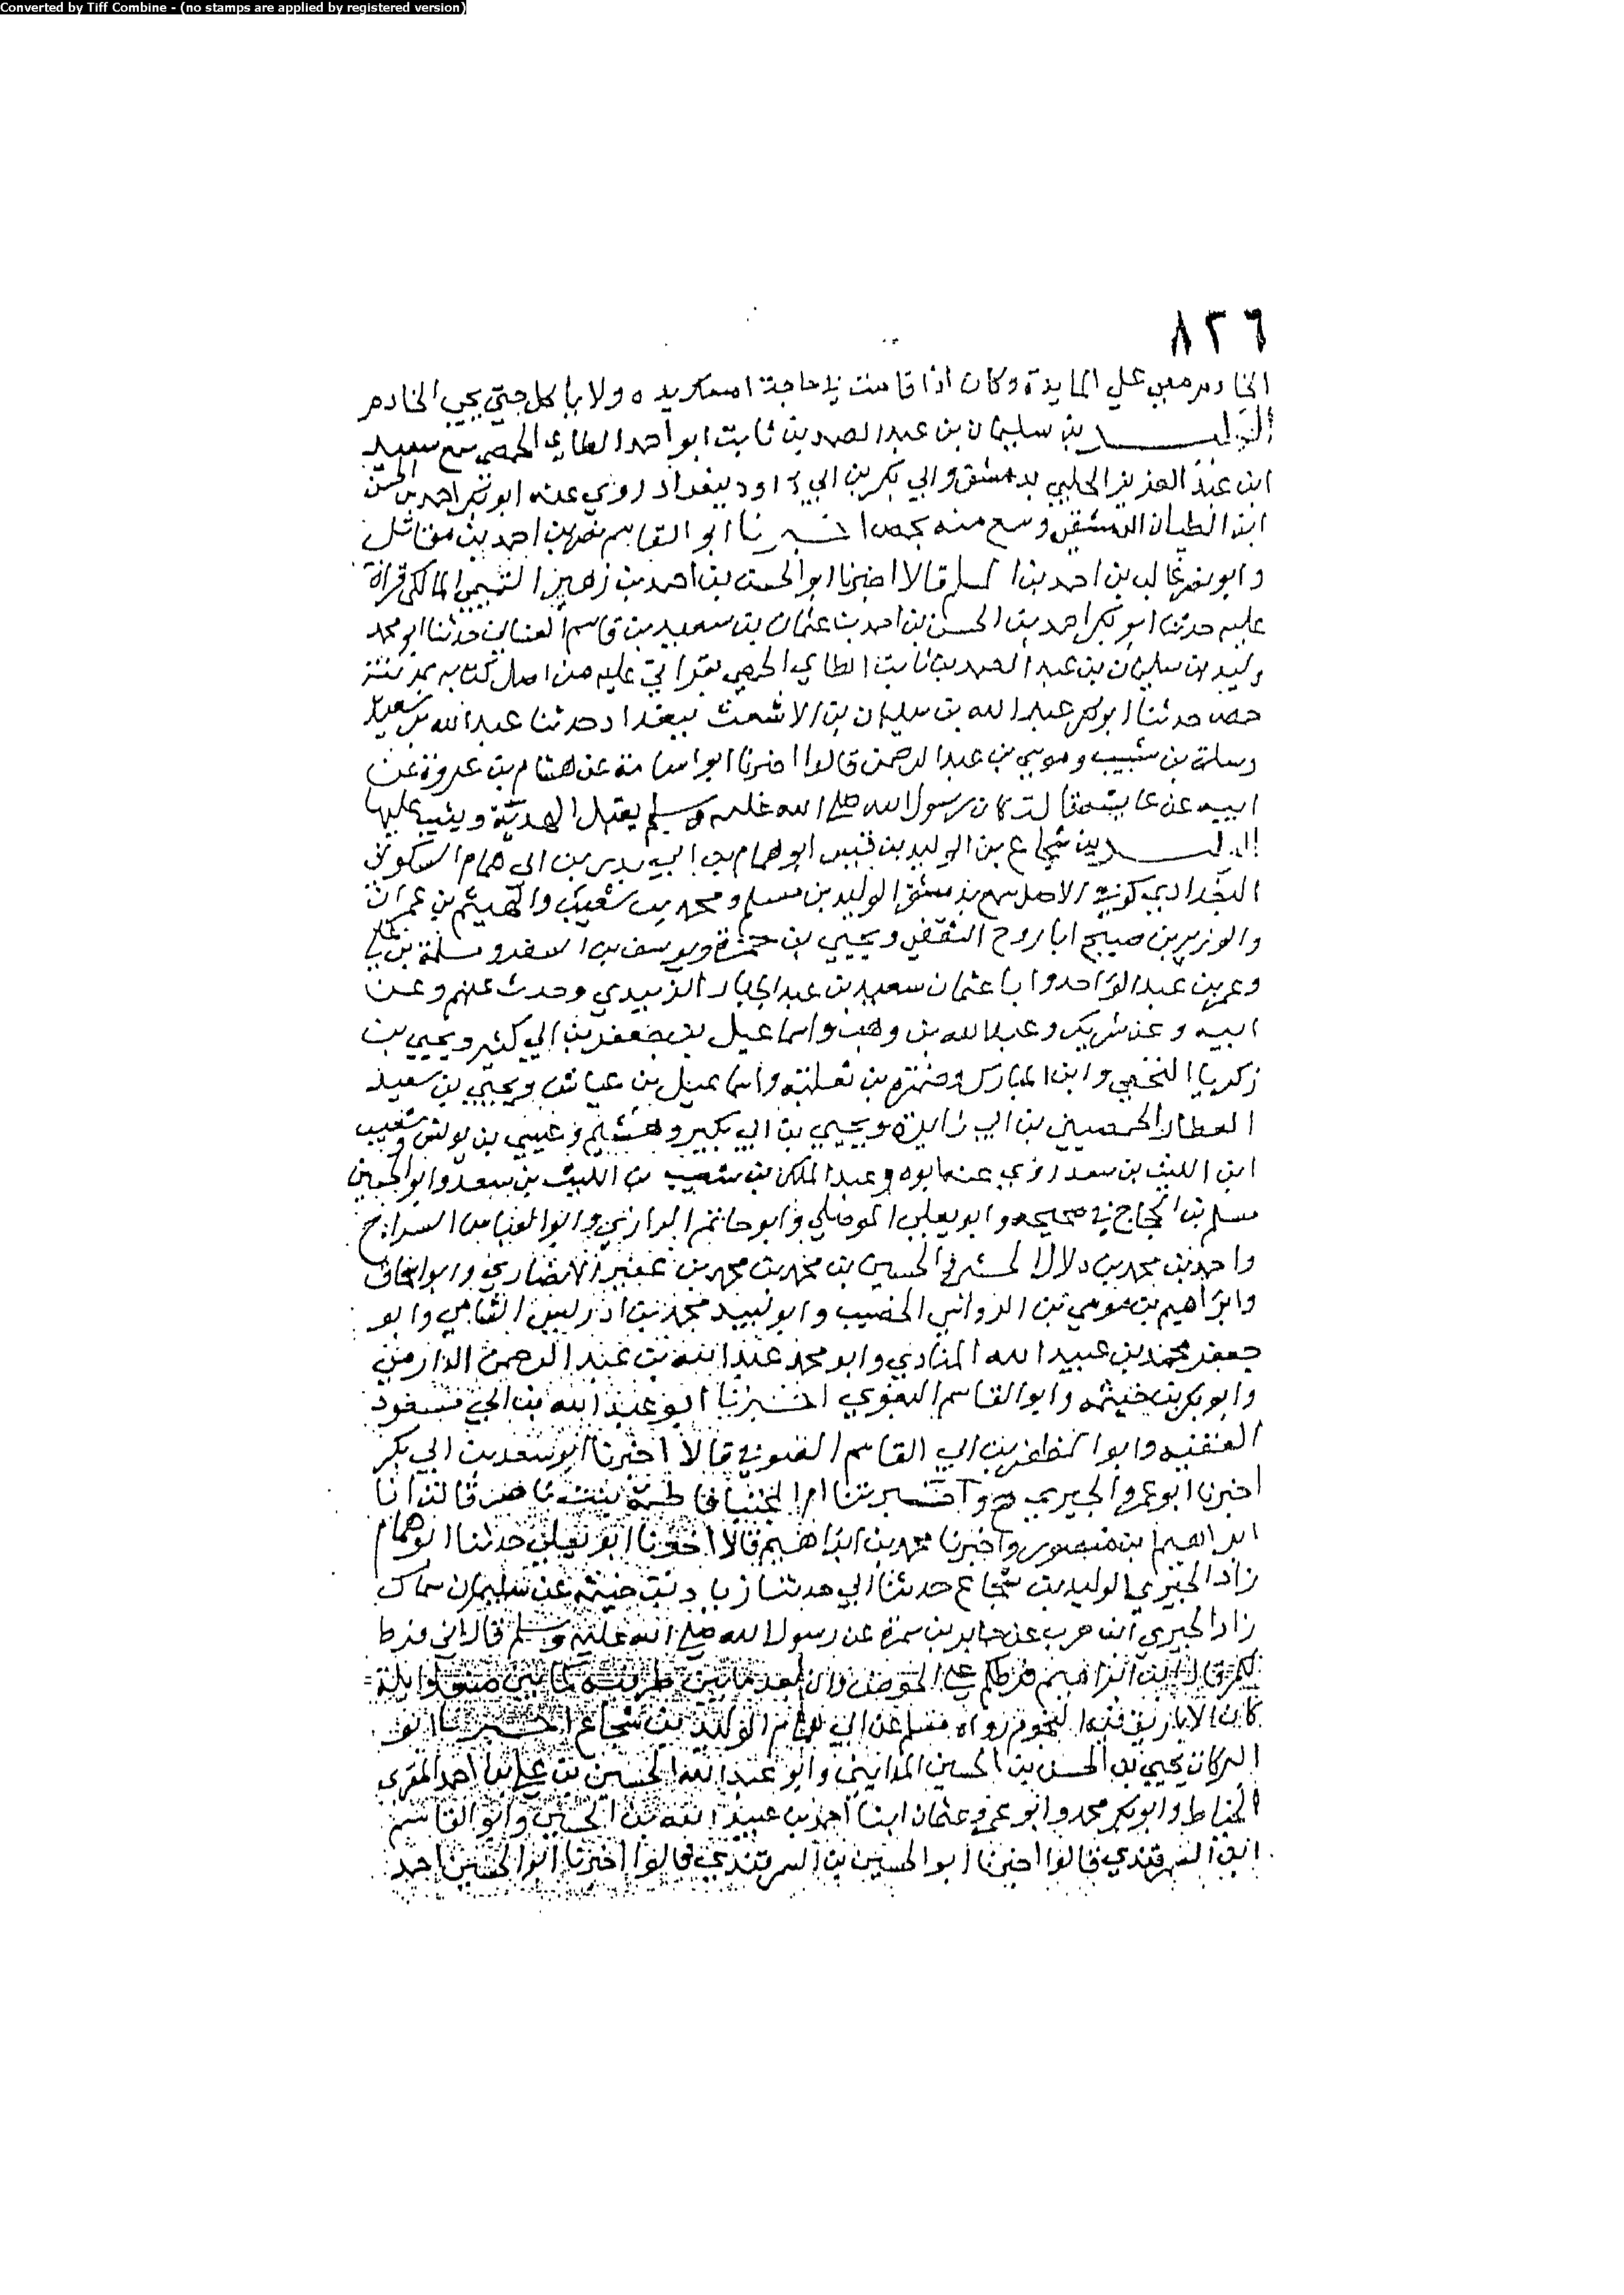 Converted by Tiff Combine - (no stamps are applied by registered version)
٨٢٦
الخادم معي علي المايدة وكان اذا قامت في حاجة امسك يده ولا ياكل حتي يجي الخادم
الوليد بن سليمان بن عبد الصمد بن ثابت ابو احمد الطاي الحمصي سمع سعيد
ابن عبد العزيز الحلبي بدمشق وابي بكر بن ابي داود ببغداد روي عنه ابو بكر احمد بن الحسن
ابن الطيان الدمشقي وسمع منه بحمص اخبرنا ابو القاسم نصر بن احمد بن مقاتل
وابو نصر غالب بن احمد بن المسلم قالا اخبرنا ابو الحسن بن احمد بن زهير التميمي المالكي قراة
عليه حدثنا ابو بكر احمد بن الحسن بن احمد بن عثمان بن سعيد بن قاسم الغساني حدثنا ابو محمد
وليد بن سليمان بن عبد الصمد بن ثابت الطاي الحمصي بقراتي عليه من اصل كتابه بمدينة
حمص حدثنا ابو بكر عبد الله بن سليمان بن الاشعث ببغداد حدثنا عبد الله بن سعيد
وسلمة بن شبيب وموسي بن عبد الرحمن قالوا اخبرنا ابو اسامة عن هشام بن عروة عن
ابيه عن عايشة قالت كان رسول الله صلى الله عليه وسلم يقبل الهدية ويثيب عليها
الوليد بن شجاع بن الوليد بن قيس ابو همام بن ابي بدر بن ابي همام السكوني
البغدادي كوفي الاصل سمع بدمشق الوليد بن مسلم ومحمد بن شعيب والهيثم بن عمران
والوزير بن صبيح ابا روح الثقفي ويحيي بن حمزة ويوسف بن السفر ومسلمة بن علي
وعمر بن عبد الواحد وابا عثمان سعيد بن عبد الجبار الزبيدي وحدث عنهم وعن
ابيه وعن شريك وعبد الله بن وهب واسماعيل بن جعفر بن ابي كثير ويحيي بن
زكريا النخعي وابن المبارك وضمرة بن ثعلبة واسماعيل بن عياش ويحيي بن سعيد
العطار الحمصيين بن ابي زايدة ويحيي بن ابي بكير وهشيم وعيسي بن يونس وشعيب
ابن الليث بن سعد روي عنه ابوه وعبد الملك بن شعيب بن الليث بن سعد وابو الحسين
مسلم بن الحجاج في صحيحه وابو يعلي الموصلي وابو حاتم الرازي وابو العباس السراج
واحمد بن محمد بن دلال الحسين بن محمد بن محمد بن عفير الانصاري وابو اسحاق
وابراهيم بن موسي بن الرواس الخضيب وابو لبيد محمد بن ادريس الشامي وابو
جعفر محمد بن عبيد الله المنادي وابو محمد عبد الله بن عبد الرحمن الدارمي
وابو بكر بن خيثمه وابو القاسم البغوي اخبرنا ابو عبد الله بن ابي مسعود
الفقيه وابو المظفر بن ابي القاسم الصوفي قالا اخبرنا ابو سعد بن ابي بكر
اخبرنا ابو عمرو الحيري ح واخبرتنا ام المجتبا فاطمة بنت ناصر قالت انا
ابراهيم بن منصور واخبرنا محمد بن ابراهيم قالا اخبرنا ابو يعلي حدثنا ابو همام
زاد الحيري الوليد بن شجاع حدثنا ابي حدثنا زياد بن خيثمة عن سليمان سماك
زاد الحيري ابن حرب عن جابر بن سمرة عن رسول الله صلى الله عليه وسلم قال اني فرط
لكم قال ابن ابراهيم فرطكم علي الحوض وان بعد ما بين طرفيه كما بين صنعا وايلة
كان الاباريق فيه النجوم رواه مسلم عن ابي همام الوليد بن شجاع اخبرنا ابو
البركات يحيي بن الحسن بن الحسين المدايني وابو عبد الله الحسين بن علي بن احمد المقري
الخياط وابو بكر محمد وابو عمرو عثمان ابنا احمد بن عبيد الله بن الحسين وابو القاسم
ابن السمرقندي قالوا اخبرنا ابو الحسين بن السمرقندي قالوا اخبرنا ابو الحسين احمد